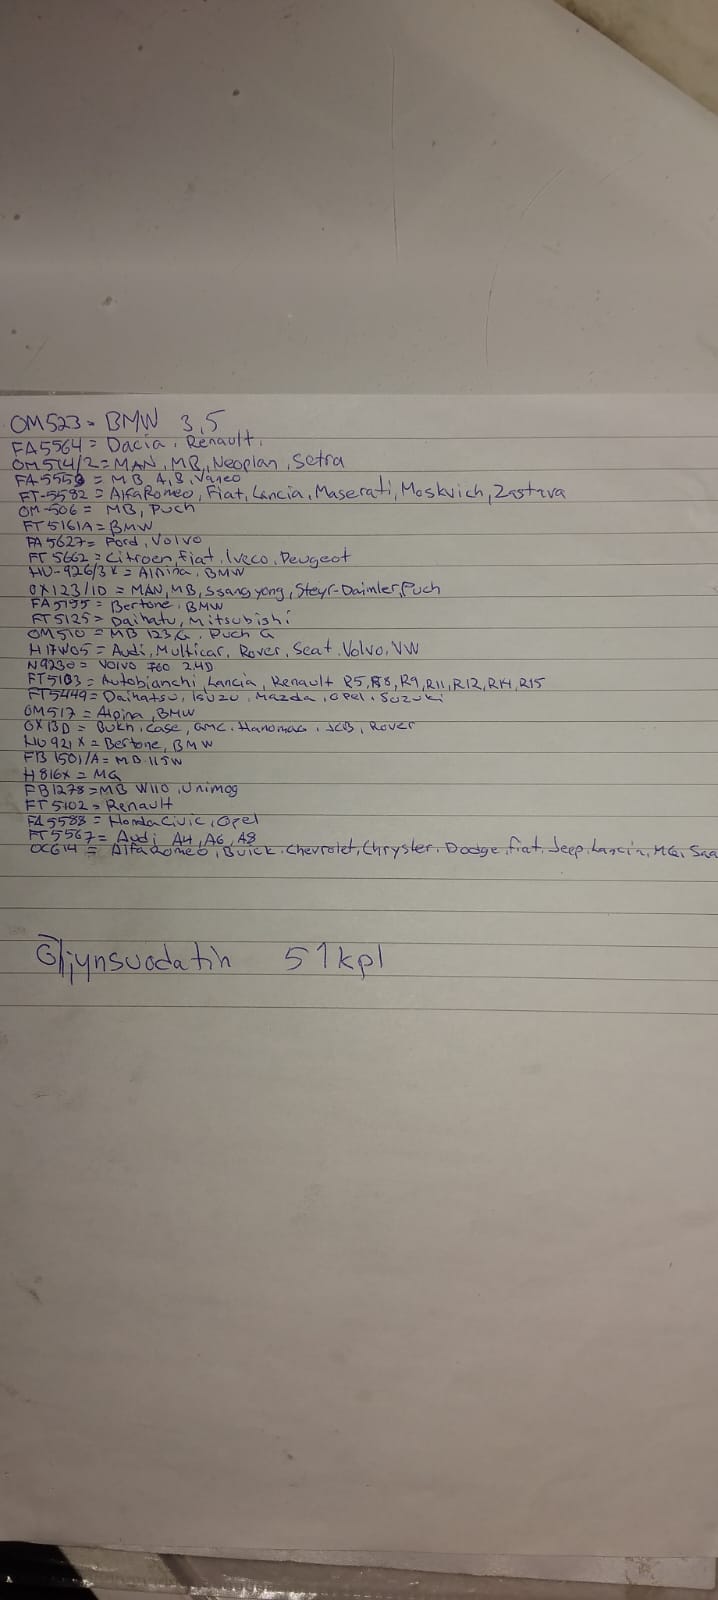 OM523 = BMW 3,5
FA5564 = Dacia, Renault,
OM514/2 = MAN, MB, Neoplan, Setra
FA5559 = MB A, B, Vaneo
FT-5582 = AlfaRomeo, Fiat, Lancia, Maserati, Moskvich, Zastava
OM-506 = MB, Puch
FT5161A = BMW
FA5627 = Ford, Volvo
FT 5662 = Citroen, fiat, Iveco, Peugeot
HU-926/3x = Alpina, BMW
OX123/1D = MAN, MB, Ssangyong, Steyr-Daimler, Puch
FA5795 = Bertone, BMW
FT5125 = Daihatu, Mitsubishi
OM510 = MB 123, G, Puch G
H17W05 = Audi, Multicar, Rover, Seat, Volvo, VW
N9230 = Volvo 760 2.4D
FT5103 = Autobianchi, Lancia, Renault R5, R8, R9, R11, R12, R14, R15
FT5449 = Daihatsu, Isuzu, Mazda, Opel, Suzuki
OM517 = Alpina, BMW
OX13D = Bukh, Case, GMC, Hanomag, JCB, Rover
HU 921 x = Bertone, BMW
FB 1501/A = MB 115W
H816x = MG
FB1278 = MB W110, Unimog
FT5102 = Renault
FA5588 = Honda Civic, Opel
FT5567 = Audi A4, A6, A8
OC614 = AlfaRomeo, Buick, Chevrolet, Chrysler, Dodge, fiat, Jeep, Lancia, MG, Saa
Öljynsuodatin 51kpl